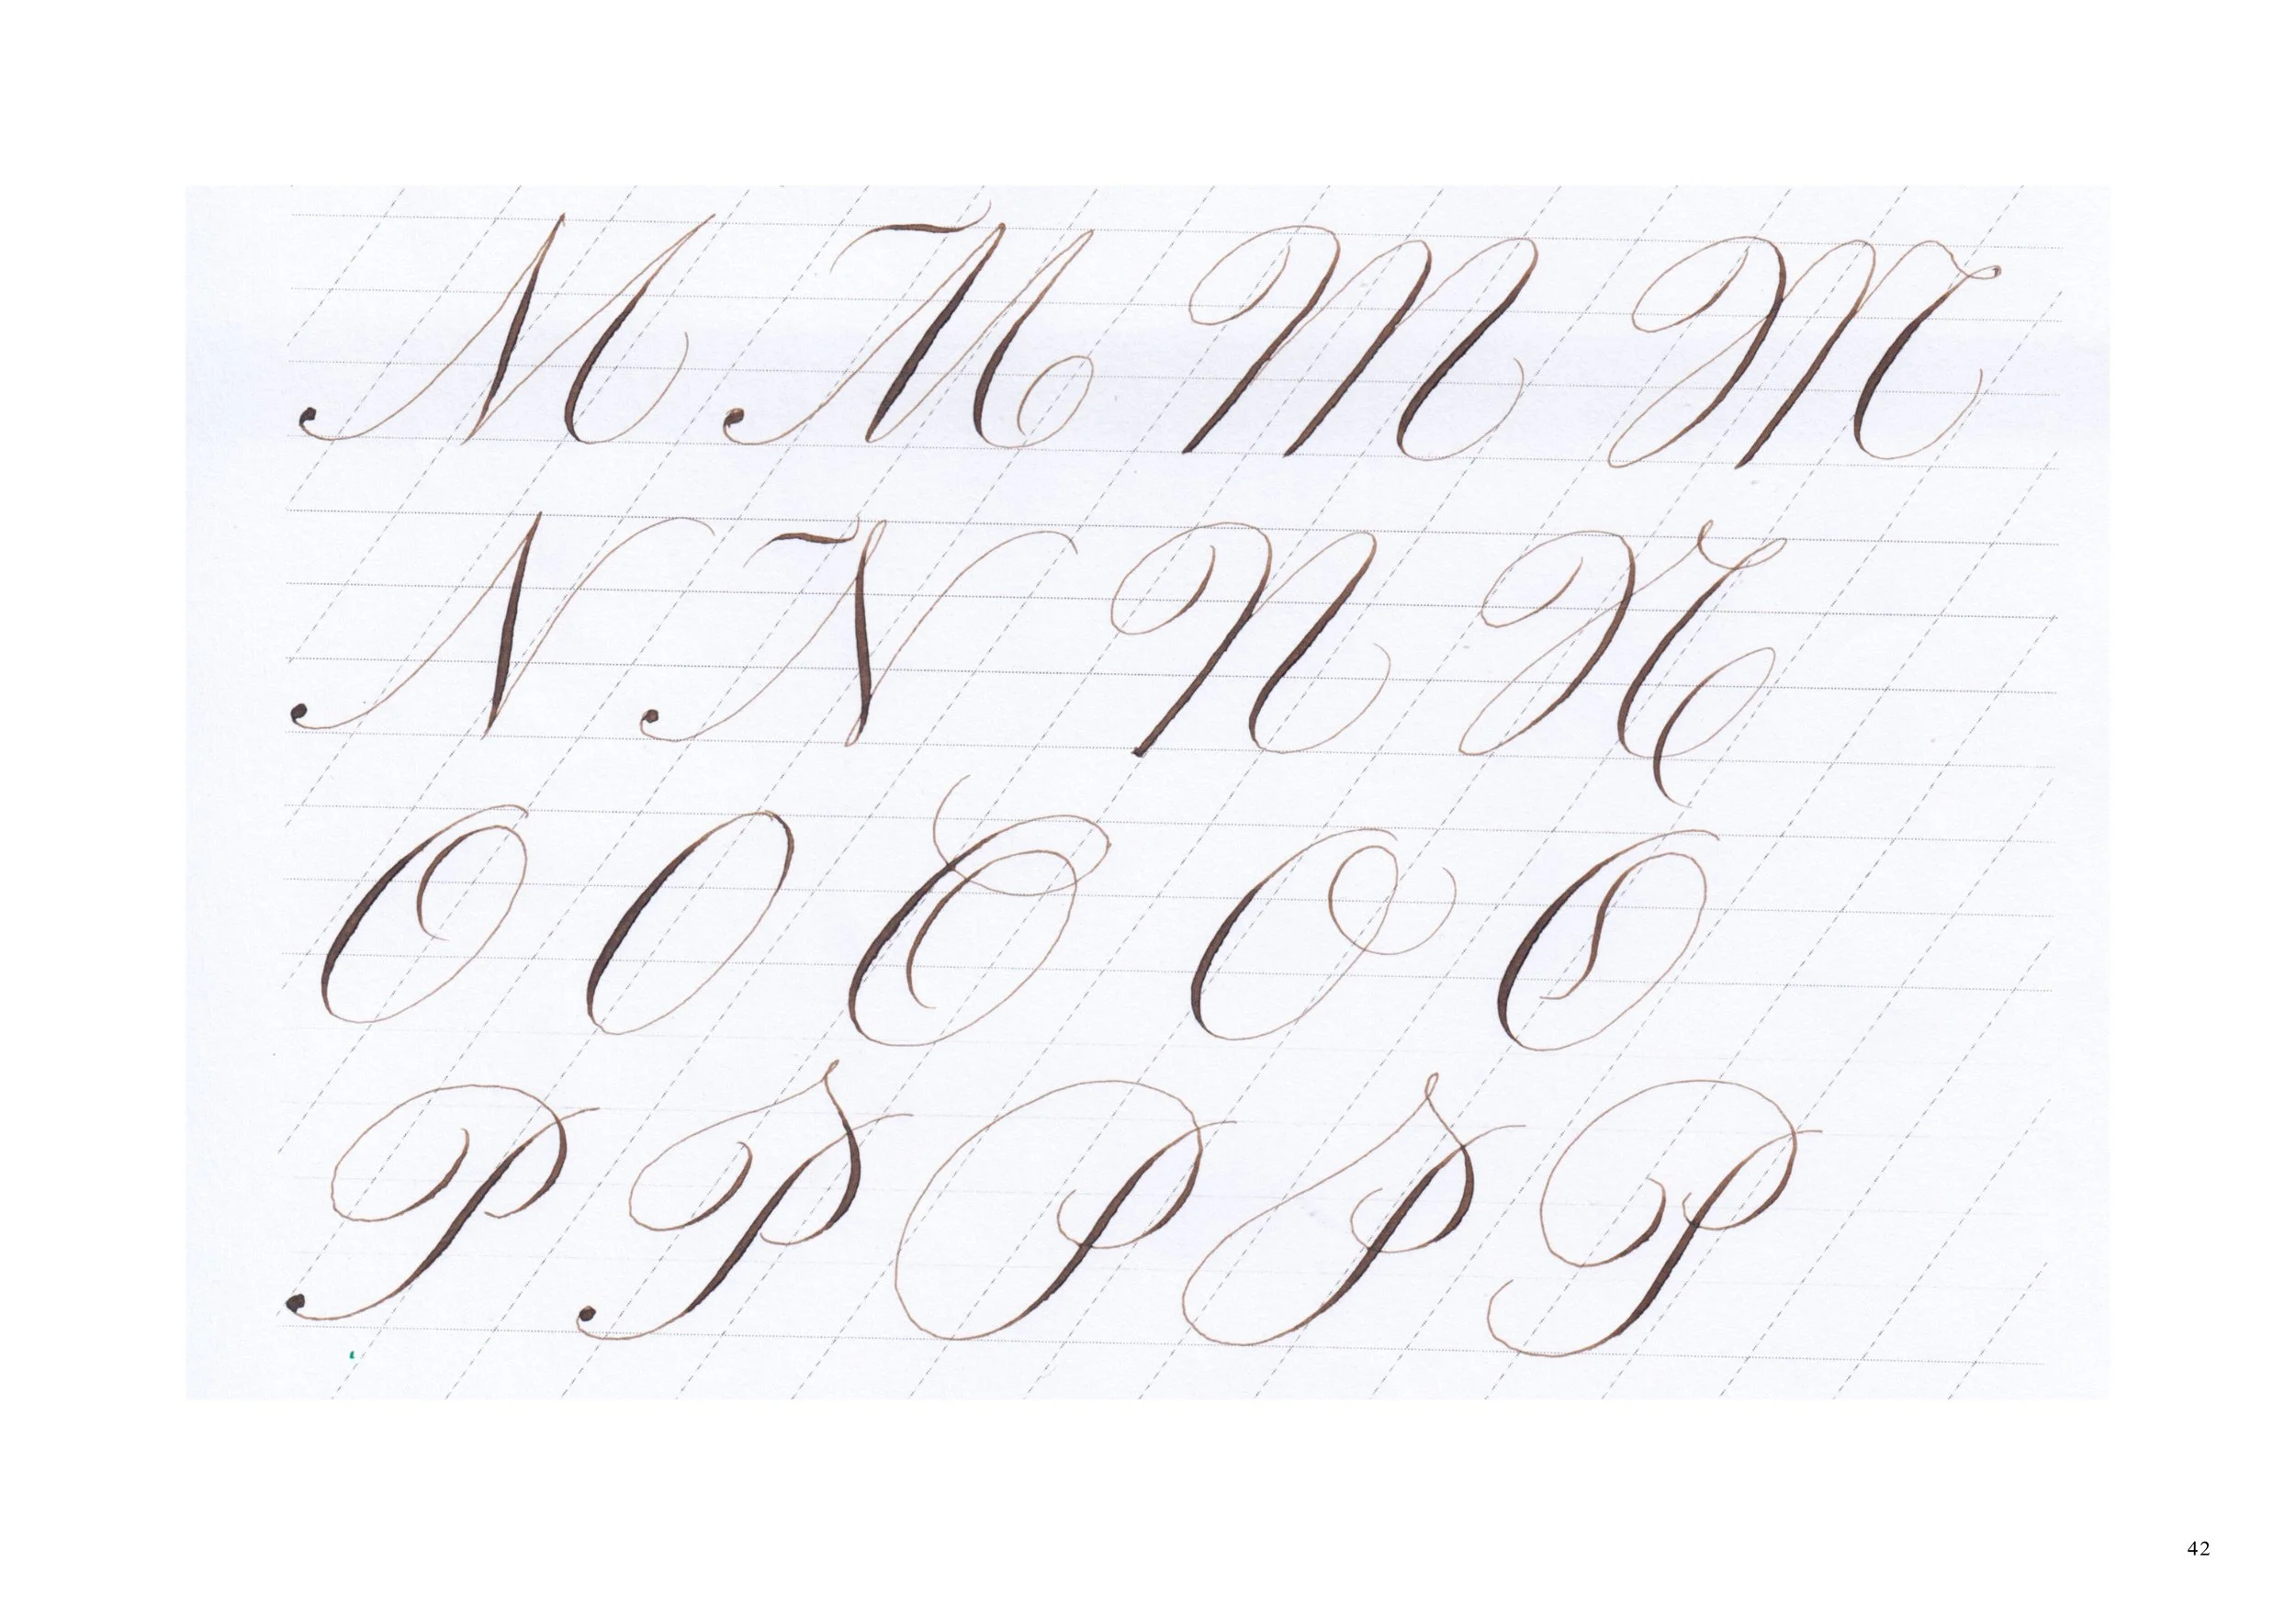 M M M M
N N N N
O O O O O
P P P P P
42